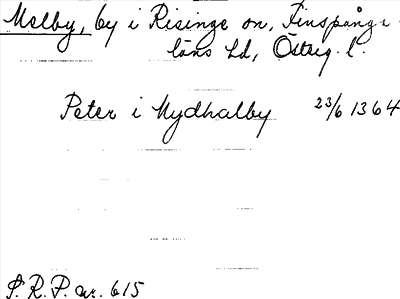 Melby, by i Risinge sn, Finspånga
läns hd, Östrg. l.
Peter i Mydhalby 23/6 1364
S.R.P. nr. 615